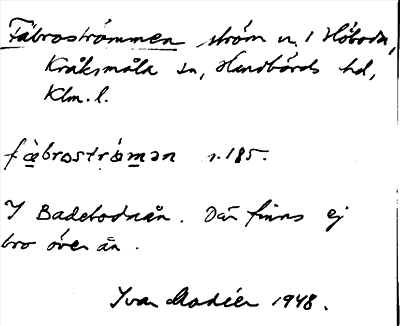 Fäbroströmmen ström n. i Höboda,
Kråksmåla sn, Handbörds hd,
Klm. l.
fä̀broströ́mən s. 185.
I Badebodaån. Där finns ej
bro över ån.
Ivar Modéer 1948.